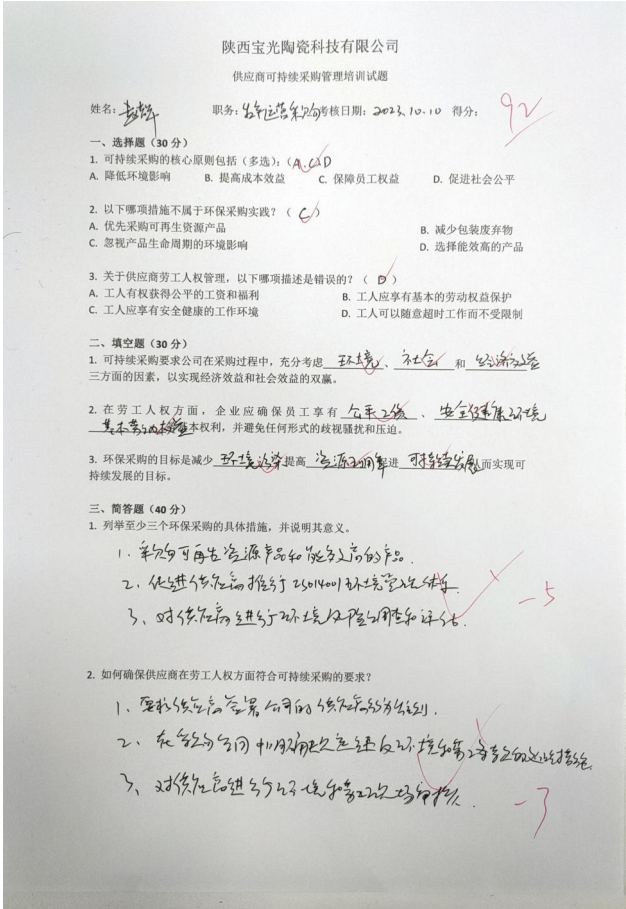 陕西宝光陶瓷科技有限公司
供应商可持续采购管理培训试题
姓名： 职务： 考核日期：2023.10.10 得分：92
一、选择题（30 分）
1. 可持续采购的核心原则包括（多选）：（A.C）D
A. 降低环境影响 B. 提高成本效益 C. 保障员工权益 D. 促进社会公平
2. 以下哪项措施不属于环保采购实践？（ C ）
A. 优先采购可再生资源产品 B. 减少包装废弃物
C. 忽视产品生命周期的环境影响 D. 选择能效高的产品
3. 关于供应商劳工人权管理，以下哪项描述是错误的？（ D ）
A. 工人有权获得公平的工资和福利 B. 工人应享有基本的劳动权益保护
C. 工人应享有安全健康的工作环境 D. 工人可以随意超时工作而不受限制
二、填空题（30 分）
1. 可持续采购要求公司在采购过程中，充分考虑 环境 、 社会 和 经济效益
三方面的因素，以实现经济效益和社会效益的双赢。
2. 在劳工人权方面，企业应确保员工享有 公平工资 、 安全健康环境
本权利，并避免任何形式的歧视骚扰和压迫。
3. 环保采购的目标是减少 环境污染 提高 资源利用率 进 可持续发展 从而实现可
持续发展的目标。
三、简答题（40 分）
1. 列举至少三个环保采购的具体措施，并说明其意义。
1. 采购可再生资源产品和能效高的产品.
2、促进供应商推行ISO14001环境管理体系
3、对供应商进行环境风险调查和评估.
-5
2. 如何确保供应商在劳工人权方面符合可持续采购的要求？
1、要求供应商签署公司的供应商行为准则.
2、在采购合同中明确规定违反环境和劳工
3、对供应商进行环境和劳工现场审核.
-3